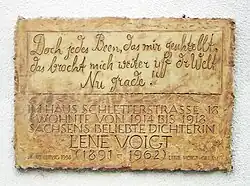 Doch jedes Been, das mir gestellt,
das brocht mich weiter uff dr Welt
Nu grade!
IM HAUS SCHLETTERSTRASSE 18
WOHNTE VON 1914 BIS 1918
SACHSENS BELIEBTE DICHTERIN
LENE VOIGT
(1891-1962)